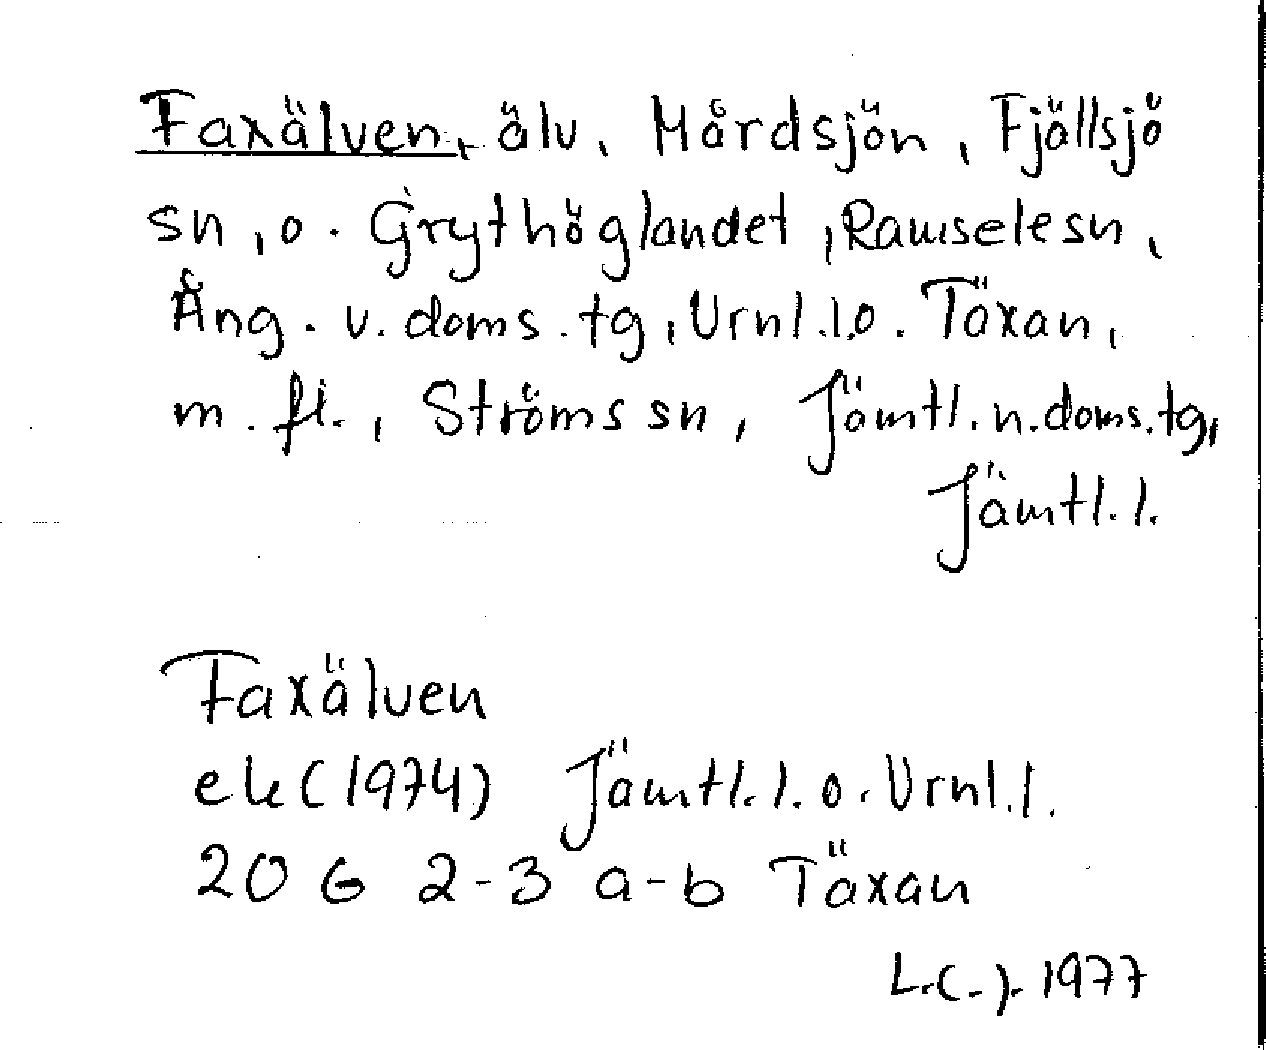 Faxälven, älv, Mårdsjön, Fjällsjö
sn, o. Grythöglandet, Ramsele sn,
Ång. v. doms. tg, Vrnl.l, o. Täxan,
m. fl., Ströms sn, Jämtl. n. doms. tg,
Jämtl. l.
Faxälven
ek (1974) Jämtl. l. o. Vrnl. l.
20 G 2-3 a-b Täxan
L.C.J. 1977